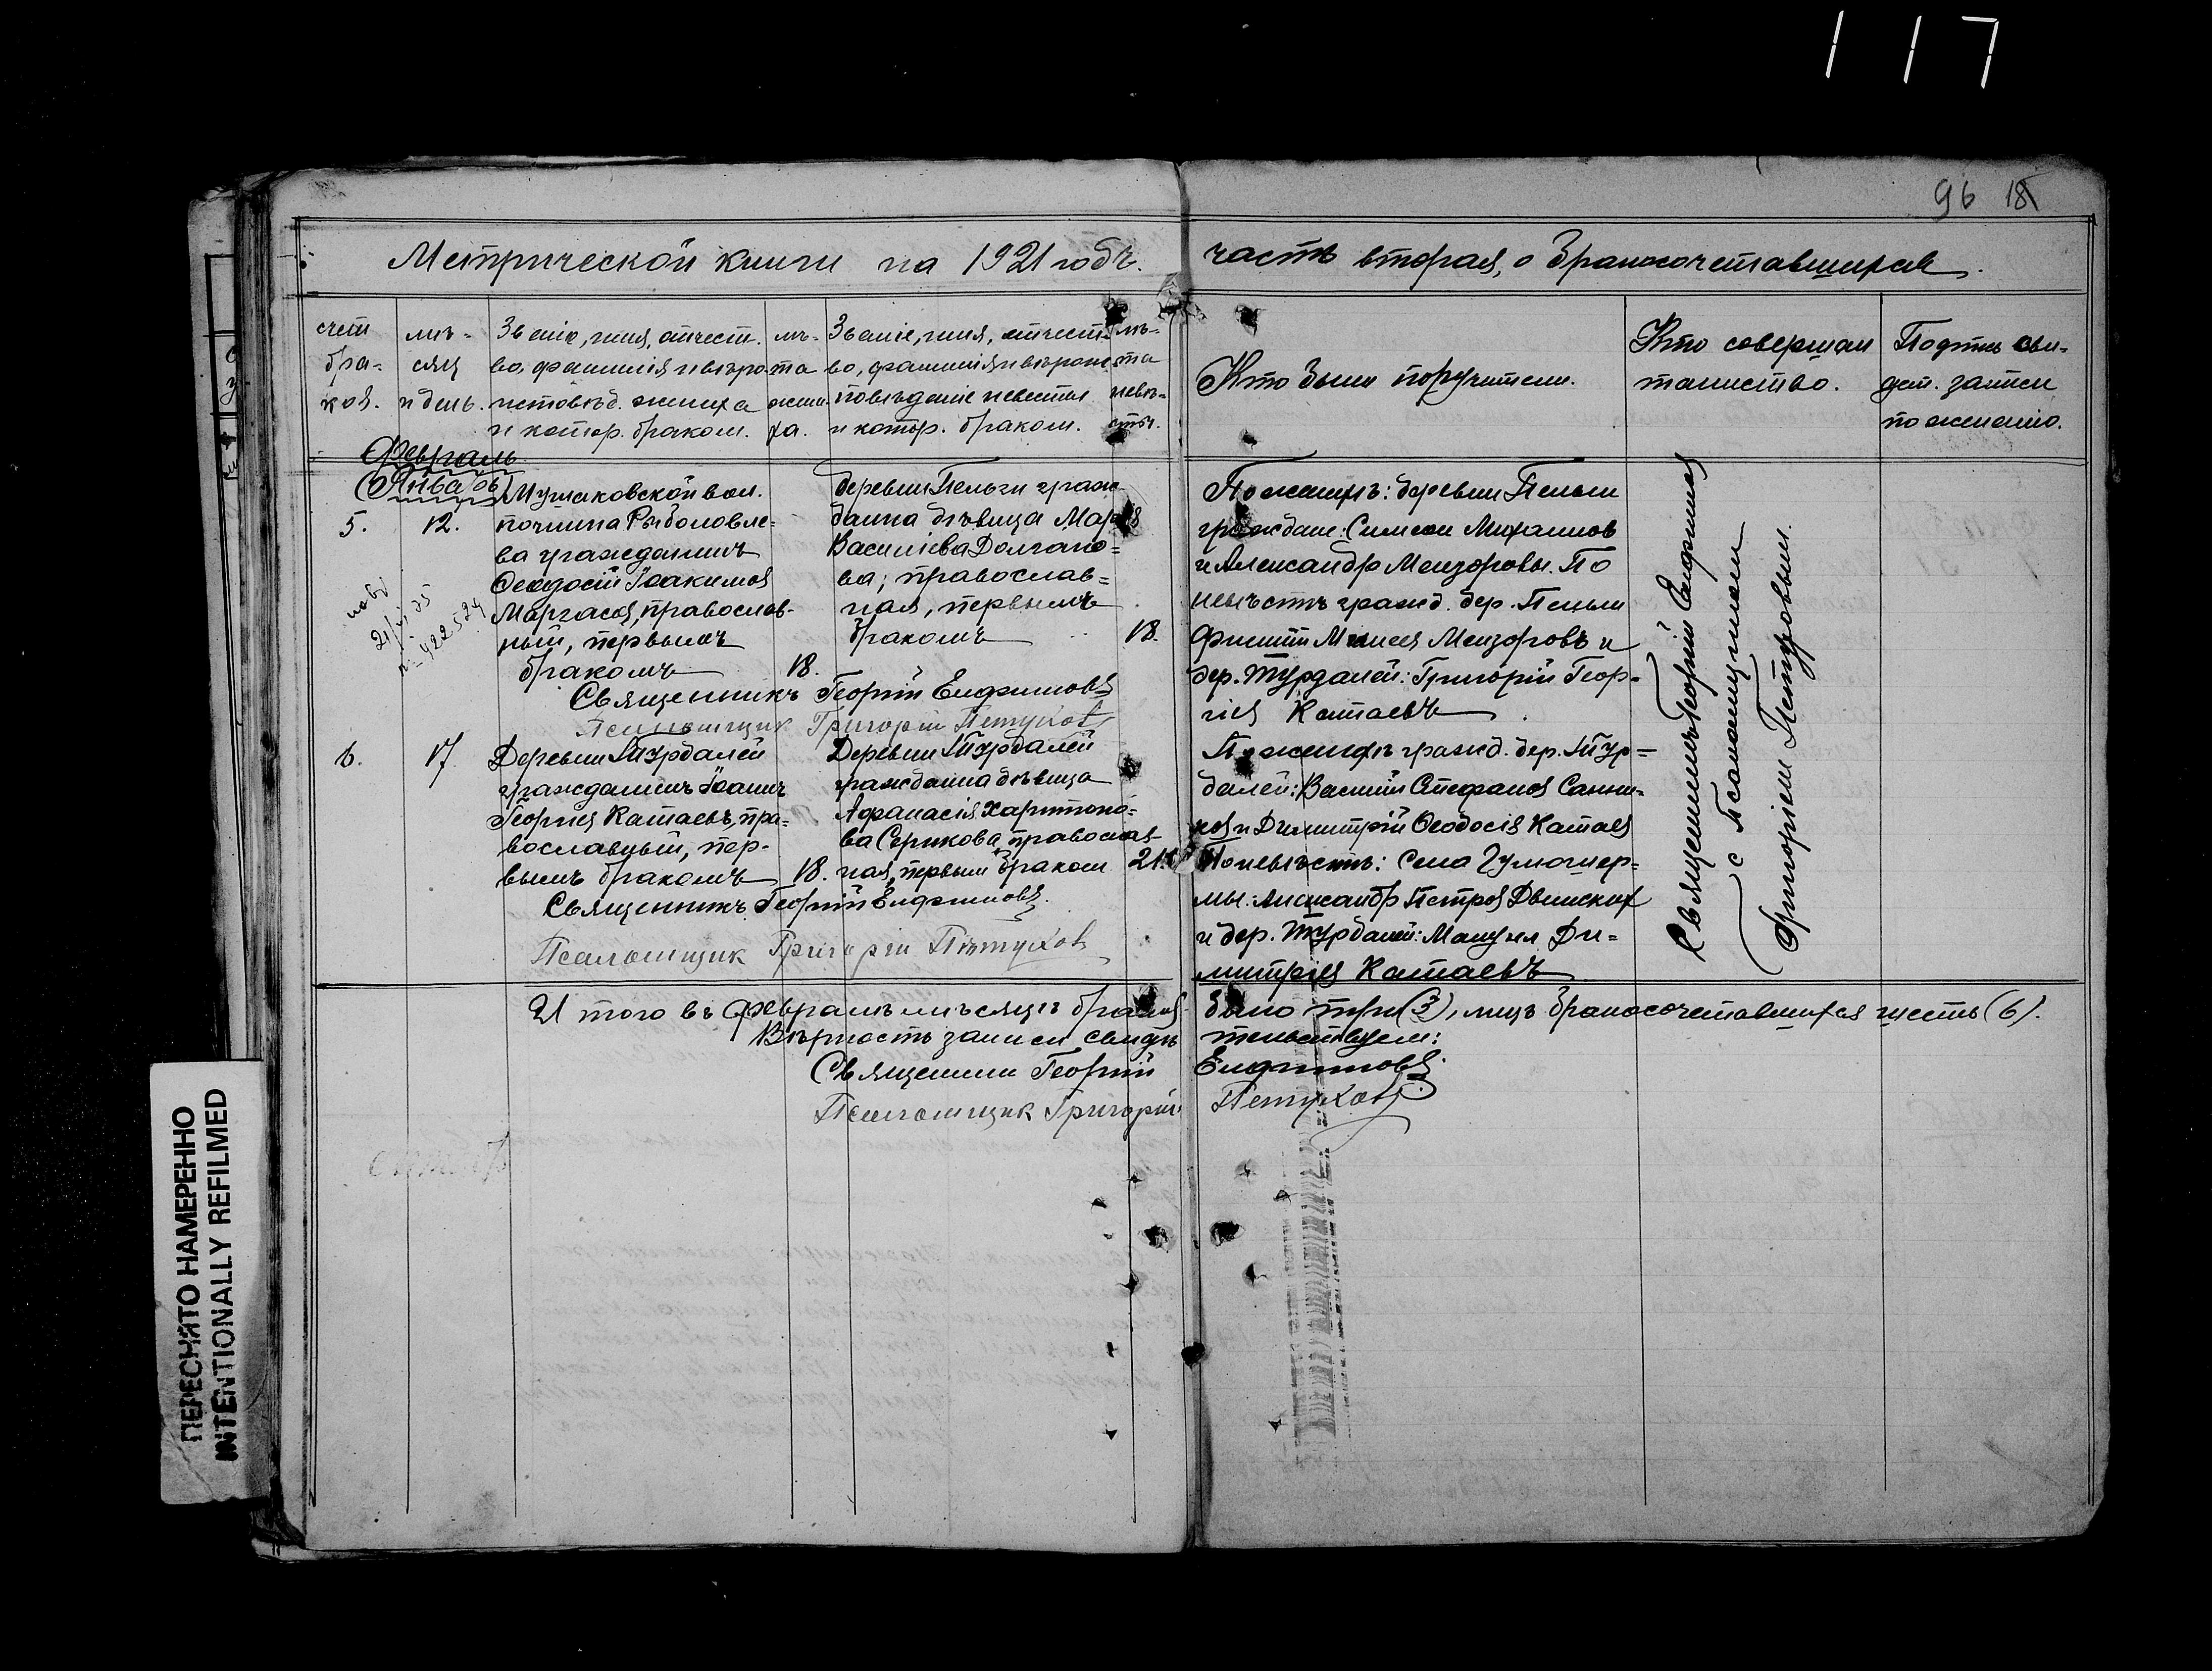 117
96 18
Метрической книги на 1921 годъ.
часть вторая, о бракосочетавшихся.
счет бра-ков.
мѣ-сяц и день.
Званіе, имя, отчест.
во, фамилія и вѣро
исповѣд. жениха
и котор. браком.
лѣ-
та
жени
ха.
Званіе, имя, отчест-
во, фамилія и вѣроис
повѣданіе невѣсты
и котор. браком.
лѣ-
та
невѣ-
сты.
Кто были поручители.
Кто совершал
таинство.
Подпись сви-
дет. записи
по желанію.
Февраль
(Январь)
5. 12.
Мушаковской вол.
починка Рыболовле-
ва гражданинъ
Феодосій Іоакимов
Маргасов, православ-
ный, первымъ
бракомъ 18.
деревни Пельги граж-
данка дѣвица
Василіева Долгано-
ва; православ-
ная, первымъ
бракомъ 18.
По женихѣ: деревни Пельги
граждане: Симеон Михаилов
и Александр Мензоровы. По
невѣстѣ гражд. дер. Пельги
Филипп Мензоровъ и
дер. Турдалей: Григорій Геор-
гіев Катаевъ
Священникъ Георгій Елфимовъ
Псаломщик Григорій Петухов
6. 17.
Деревни Турдалей
гражданинъ Іоаннъ
Георгіев Катаевъ, пра-
вославный, пер-
вымъ бракомъ 18.
Деревни Турдалей
гражданка дѣвица
Афанасія Харитоно-
ва Серикова, православ-
ная, первым браком 21.
По женихѣ гражд. дер. Тур-
далей: Василій Стефанов Санни-
ков и Димитрій Феодосіев Катаев
По невѣстѣ: Села Гулюшер-
мы: Александр Петров Двинских
и дер. Турдалей: Мануил Ди-
митріев Катаевъ
Священникъ Георгій Елфимовъ.
Псаломщик Григорій Пѣтухов
Священникъ Георгій Елфимов
с Псаломщиком
Григоріем Петуховым.
Итого въ Февралѣ мѣсяцѣ браков
было три (3), лицъ бракосочетавшихся шесть (6).
Вѣрность записи свидѣ
тельствуем:
Священник Георгій Елфимовъ.
Псаломщик Григорій Петухов
ПЕРЕСНЯТО НАМЕРЕННО
INTENTIONALLY REFILMED